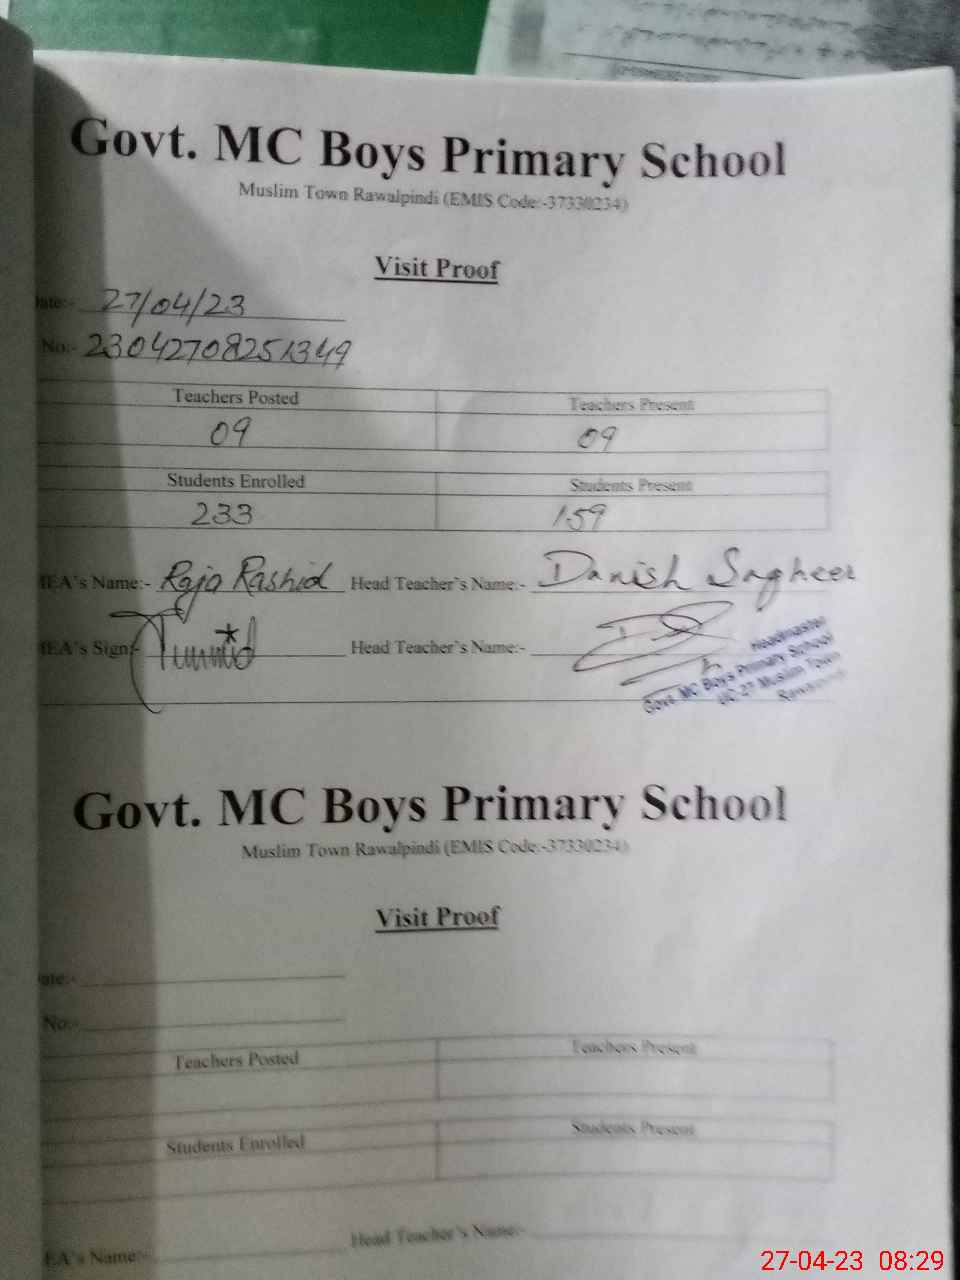 Govt. MC Boys Primary School
Muslim Town Rawalpindi (EMIS Code:-37330234)
Visit Proof
ate:- 27/04/23
No:- 23042708251349
Teachers Posted Teachers Present
09 09
Students Enrolled Students Present
233 159
EA's Name:- Raja Rashid Head Teacher's Name:- Danish Sagheer
EA's Sign:- Head Teacher's Name:-
Headmaster
Govt. MC Boys Primary School
UC-27 Muslim Town
Govt. MC Boys Primary School
Muslim Town Rawalpindi (EMIS Code:-37330234)
Visit Proof
ate:-
No:-
Teachers Posted Teachers Present
Students Enrolled Students Present
EA's Name:- Head Teacher's Name:-
27-04-23 08:29